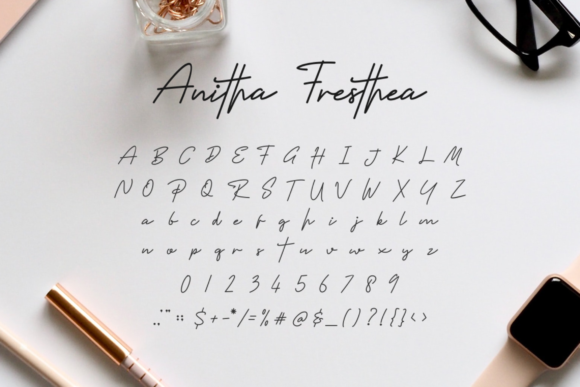 Anitha Fresthea
A B C D E F G H I J K L M
N O P Q R S T U V W X Y Z
a b c d e f g h i j k l m
n o p q r s t u v w x y z
0 1 2 3 4 5 6 7 8 9
$ + - * / = % # @ & _ ( ) ? { } < >